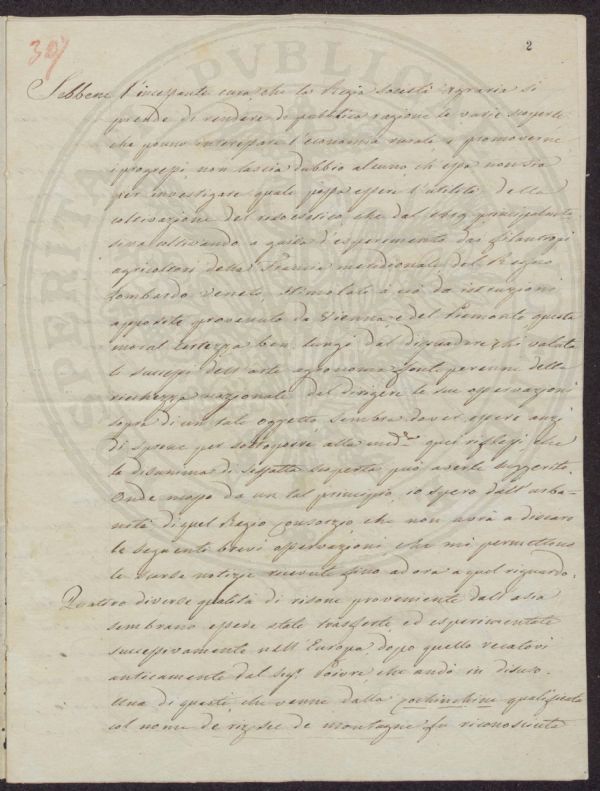 307
2
Sebbene l'incessante cura che la Regia società Agraria si
prende di rendere di pubblica ragione le varie scoperte
che ponno interessare l'economia rurale e promoverne
i progressi non lascia dubbio alcuno ch'essa non sia
per investigare quale possa essere l'utilità della
coltivazione del riso che dal principalmente
si va coltivando a guisa d'esperimento dai filantropi
agricoltori della Francia meridionale del Regno
Lombardo Veneto, stimolati a ciò da istruzioni
apposite provenute da Vienna e del Piemonte questa
moral certezza ben lungi dal dissuadere chi valuta
li successi dell'arte agronoma fonte perenne della
ricchezza nazionale dal dirigere le sue osservazioni
sopra di un tale oggetto sembra dover essere anzi
di sprone per sottoporre alla med.ma quei riflessi che
la disamina di siffatta scoperta può averle suggerito.
Onde mosso da un tal principio, io spero dall'urba-
nità di quel Regio Consorzio che non avrà a discaro
le seguenti brevi osservazioni che mi permettono
le scarse notizie ricevute fino ad ora a quel riguardo.
Quattro diverse qualità di risone proveniente dall'asia
sembrano essere state trasferte ed esperimentate
successivamente nell'Europa, dopo quello recatovi
anticamente dal Sig.r Poivre, che andò in disuso.
Una di questi che venne dalla Cochinchina qualificata
col nome de riz sec de montagne fu riconosciuta